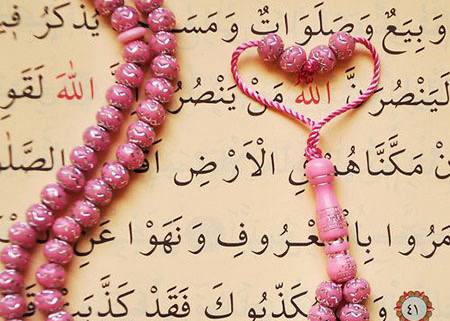 وَبِيَعٌ وَصَلَوَاتٌ وَمَسَـ يُذْكَرُ فِيهَـ
لَيَنْصُرَنَّ اللّٰهُ مَنْ يَنْصُرُ اللّٰهَ لَقَوِ
نْ مَكَّنَّاهُمْ فِي الْاَرْضِ اَقَا الصَّلٰو
مَرُوا بِالْمَعْرُوفِ وَنَهَوْا عَنِ
يُكَذِّبُوكَ فَقَدْ كَذَّبَتْ
٤١